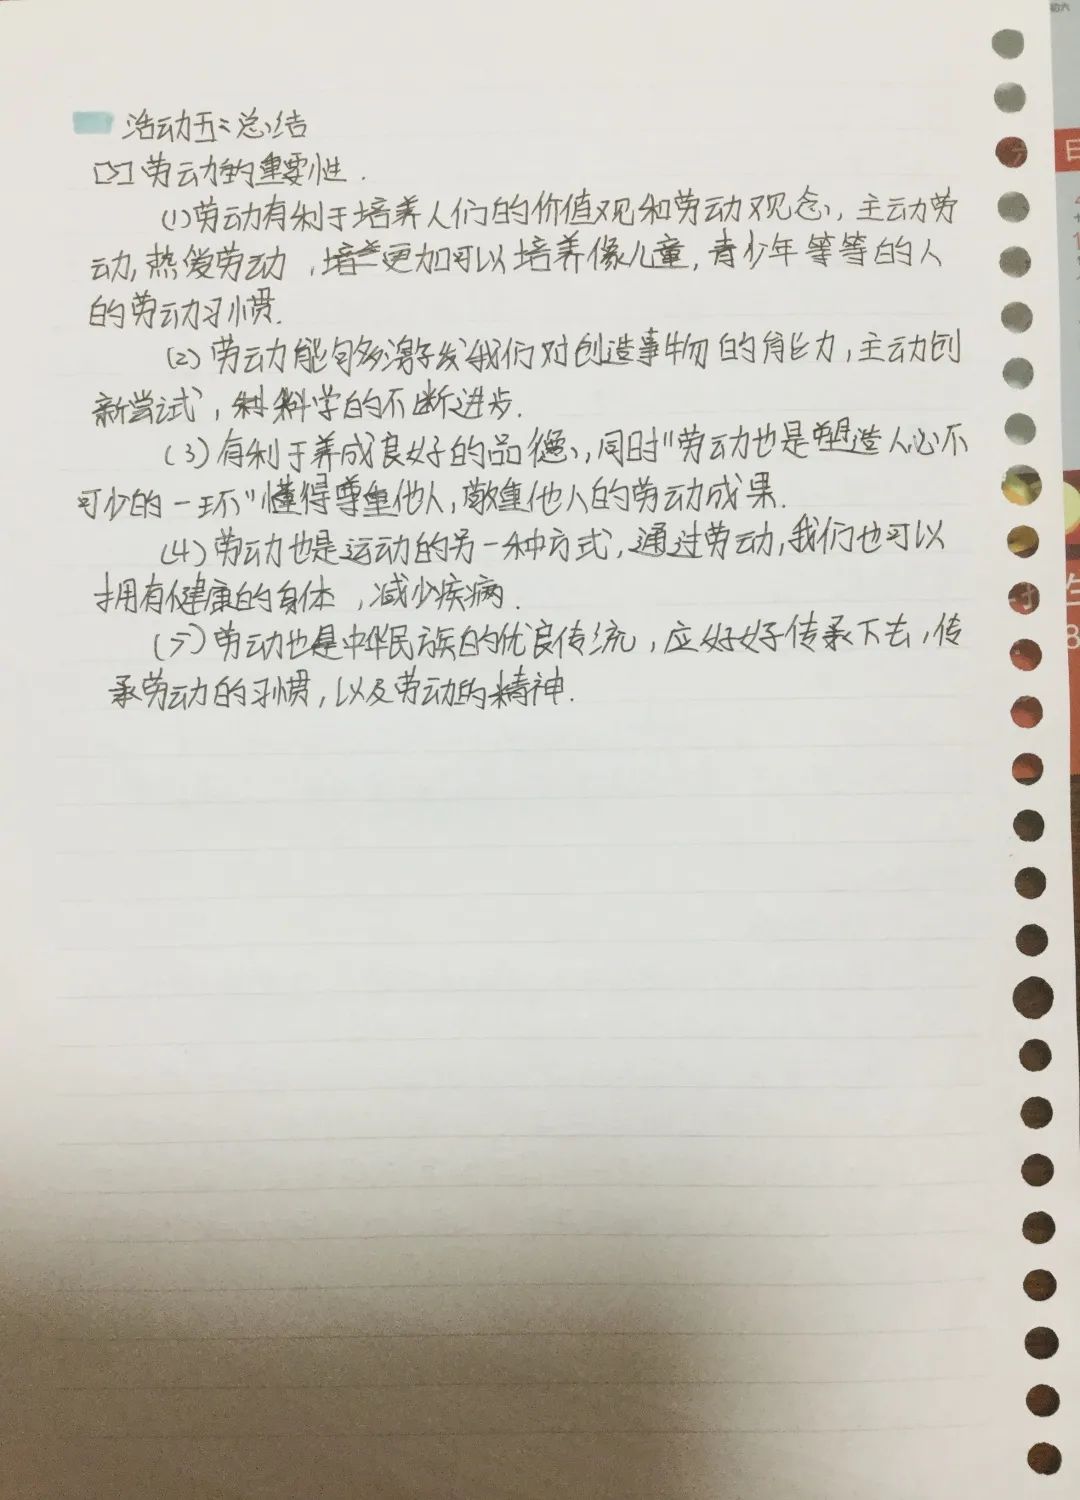 活动五:总结
[3]劳动的重要性.
(1)劳动有利于培养人们的价值观和劳动观念,主动劳
动,热爱劳动,更加可以培养像儿童,青少年等等的人
的劳动习惯.
(2)劳动能够激发我们对创造事物的能力,主动创
新尝试,科学的不断进步.
(3)有利于养成良好的品德,同时"劳动也是塑造人心不
可少的一环"懂得尊重他人,敬重他人的劳动成果.
(4)劳动也是运动的另一种方式,通过劳动,我们也可以
拥有健康的身体,减少疾病.
(5)劳动也是中华民族的优良传统,应好好传承下去,传
承劳动的习惯,以及劳动的精神.
初六
日
生
8